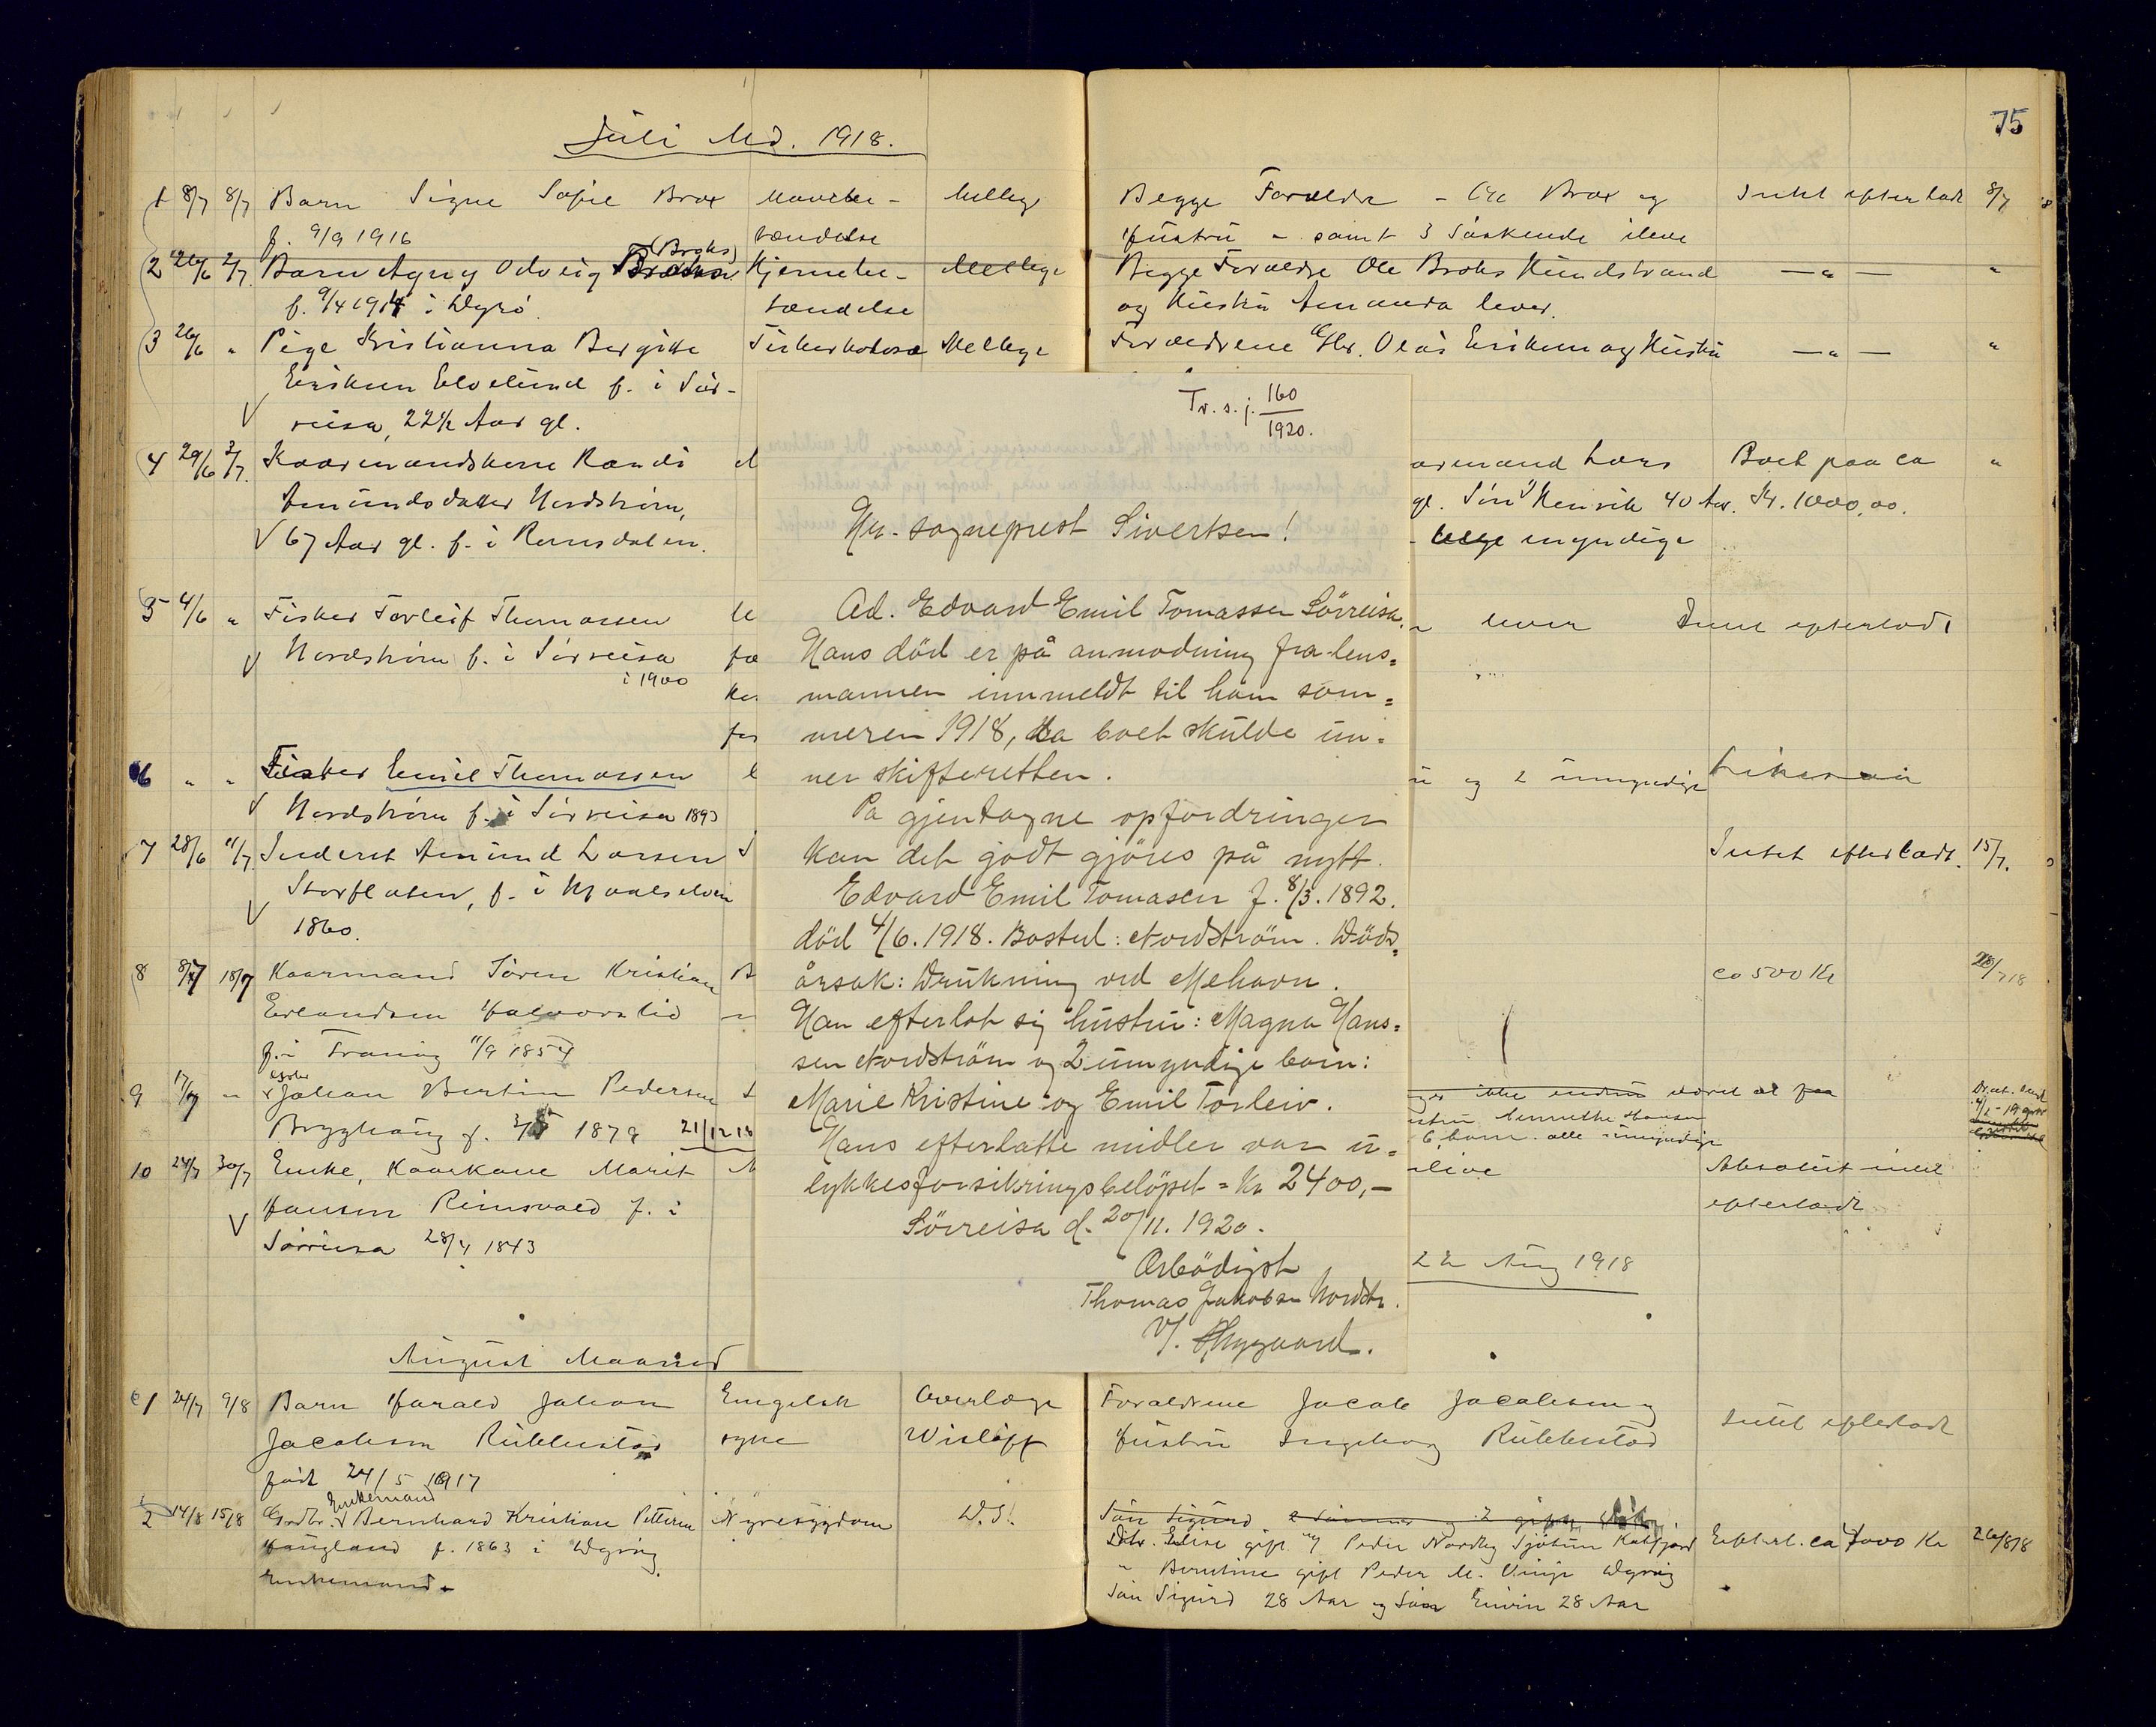 75
Juli Md. 1918.
1 8/7 8/7 Barn Signe Sofie Brox
f. 9/9 1916
Begge Forældre - Ole Brox og
Hustru - samt 3 Söskende ilive
Intet efterladt 8/7
2 26/6 2/7. Barn Agny Odveig (Broks)
f. 9/4 1914 i Dyrö.
Hjernebe-
tændelse
Mellbye
Begge Forældre Ole Broks Kundstrand
og Hustru Amanda lever.
— " — "
3 26/6 " Pige Kristianna Bergitte
Eriksen Elvelund f. i Sör-
reisa, 22 1/2 Aar gl.
Mellbye
Forældrene Gbr. Olai Eriksen og Hustru
— " — "
4 29/6 2/7. Kaarmandskone Randi
Amundsdatter Nordström,
67 Aar gl. f. i Romsdalen.
armand Lars
gl. Sön Henrik 40 Aar.
- umyndige
Boet paa ca
Kr. 1000,00.
"
5 4/6 " Fisker Torleif Thomassen
Nordström f. i Sörreisa
i 1900
lever
Intet efterladt
6 " " Fisker Emil Thomassen
Nordström f. i Sörreisa 1893
og 2 umyndige
Likesaa
7 28/6 11/7. Inderst Amund Larsen
Storflaten, f. i Maalselven
1860.
Intet efterladt. 15/7.
8 8/7 18/7 Kaarmand Sören Kristian
Erlandsen Halvorslid
f. i Tranöy 11/9 1854
ca 500 Kr
9 17/7 " Johan Bertin Pedersen
Brygghaug f. 1879 21/12 18
ikke endnu været at faa
Hansen
6 barn. alle umyndige
10 24/7 30/7 Enke, Kaarkone Marit
Hansen Reinsvold f. i
Sörreisa 28/4 1843
ilive
Absolut intet
efterladt
22 Aug 1918
Tr. s. j. 160
1920.
Hr. sogneprest Sivertsen!
Ad. Edvard Emil Tomassen Sörreisa.
Hans död er på anmodning fra lens=
mannen innmeldt til ham som=
meren 1918, da boet skulde un-
ner skifteretten.
Pa gjentagne opfordringer
kan det godt gjöres på nytt.
Edvard Emil Tomasen f. 8/3. 1892.
död 4/6. 1918. Bosted: Nordström. Döds=
årsak: Drukning ved Mehavn.
Han efterlot sig hustru: Magna Hans=
sen Nordström og 2 umyndige barn:
Marie Kristine og Emil Torleiv.
Hans efterlatte midler var u=
lykkesforsikringsbelöpet = Kr 2400,-
Sörreisa d. 20/11. 1920.
Ærbödigst
Thomas Jakobsen Nordstr.
August Maaned
1 24/7 9/8 Barn Harald Johan
Jacobsen Rubbestad
född 24/5 1917
Engelsk
syke
Overlæge
Wislöff
Forældrene Jacob Jacobsen og
Hustru Ingeborg Rubbestad
Intet efterladt
2 14/8 15/8 Grdbr. Enkemand Bernhard Kristian Pettersen
Haugland f. 1863 i Dyröy
Enkemand.
Nyresygdom
D.S.
Sön Sigurd
Dtr. Elise gift m/ Peder Nordby Sjötun Katfjord
" Berntine gift Peder M. Vinje Dyröy
Sön Sigurd 28 Aar og Sön Einin 28 Aar
Efterl. ca 4000 Kr
26/8 18